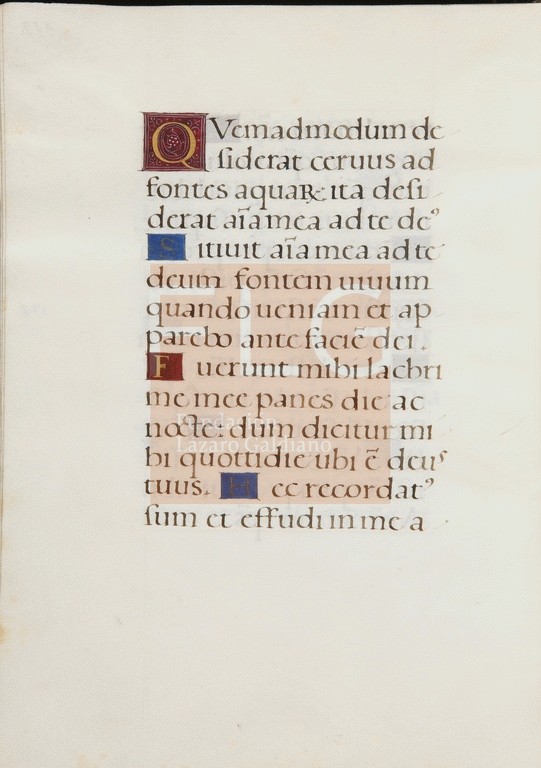 QVemadmodum de
siderat ceruus ad
fontes aquaꝝ: ita desi
derat aīa mea ad te deꝰ
Sitiuit aīa mea ad te
deum fontem uiuum
quando ueniam et ap
parebo ante faciē dei.
Fuerunt mihi lachri
me mee panes die ac
nocte: dum dicitur mi
hi quottidie ubi ē deuˢ
tuus. Hec recordatꝰ
sum et effudi in me a
FLG
Fundación
Lázaro Galdiano